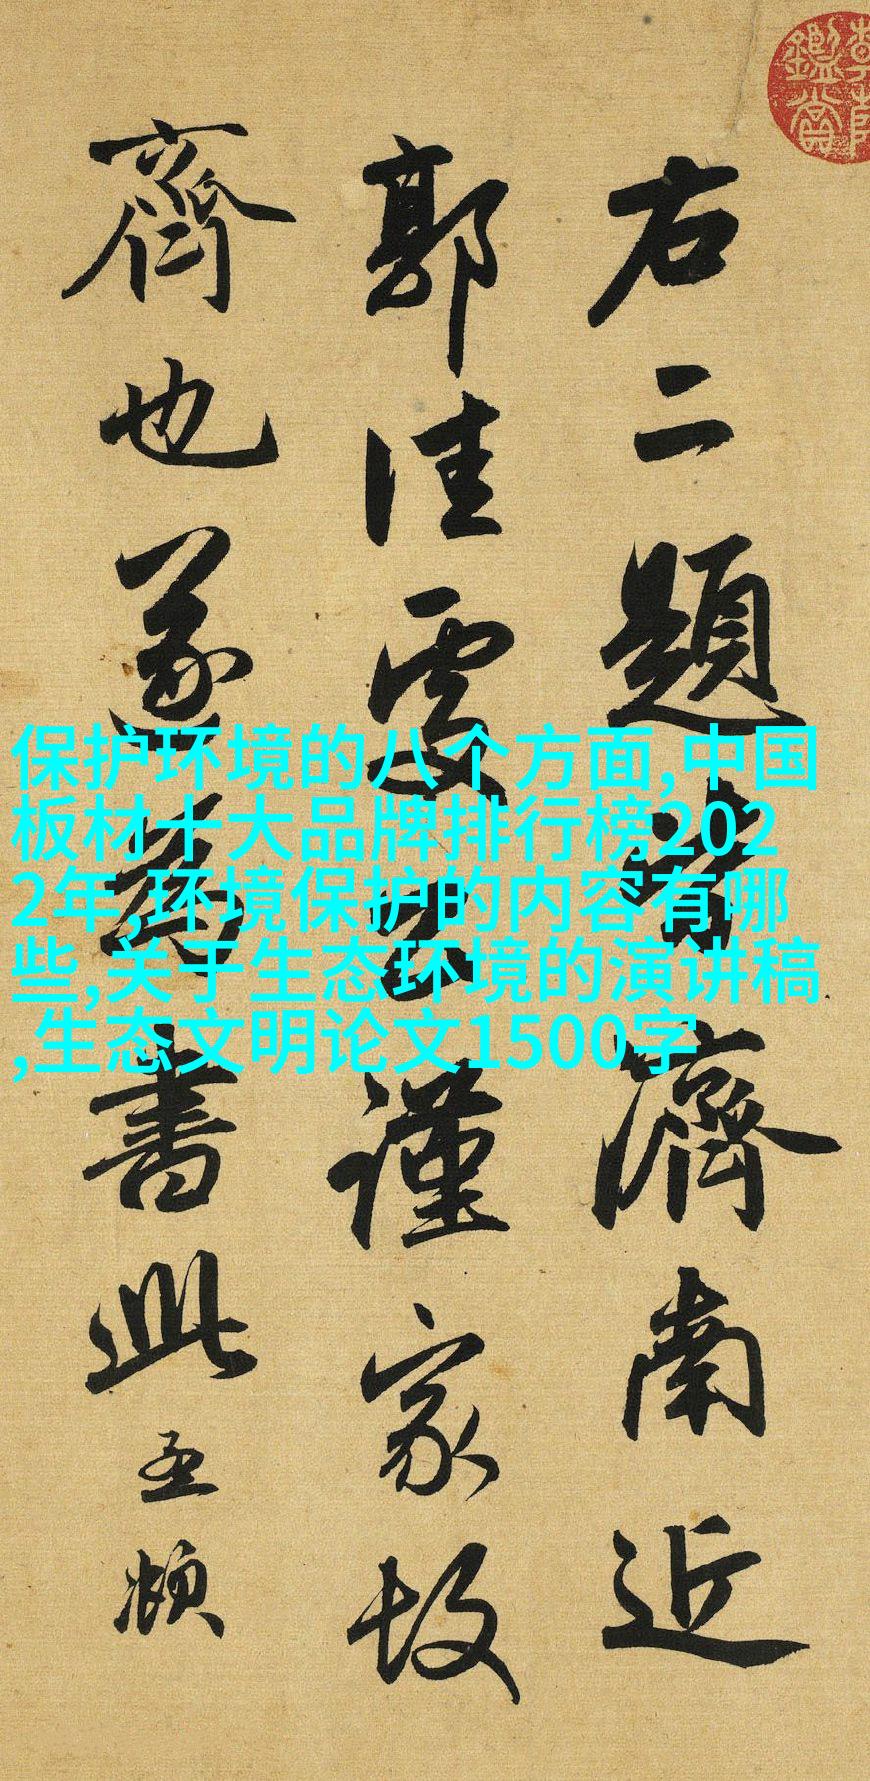 右二題皆濟南近
郭佳處公謹家故
齊也遂為書此孟頫
保护环境的八个方面,中国
板材十大品牌排行榜202
2年,环境保护的内容有哪
些,关于生态环境的演讲稿
,生态文明论文1500字